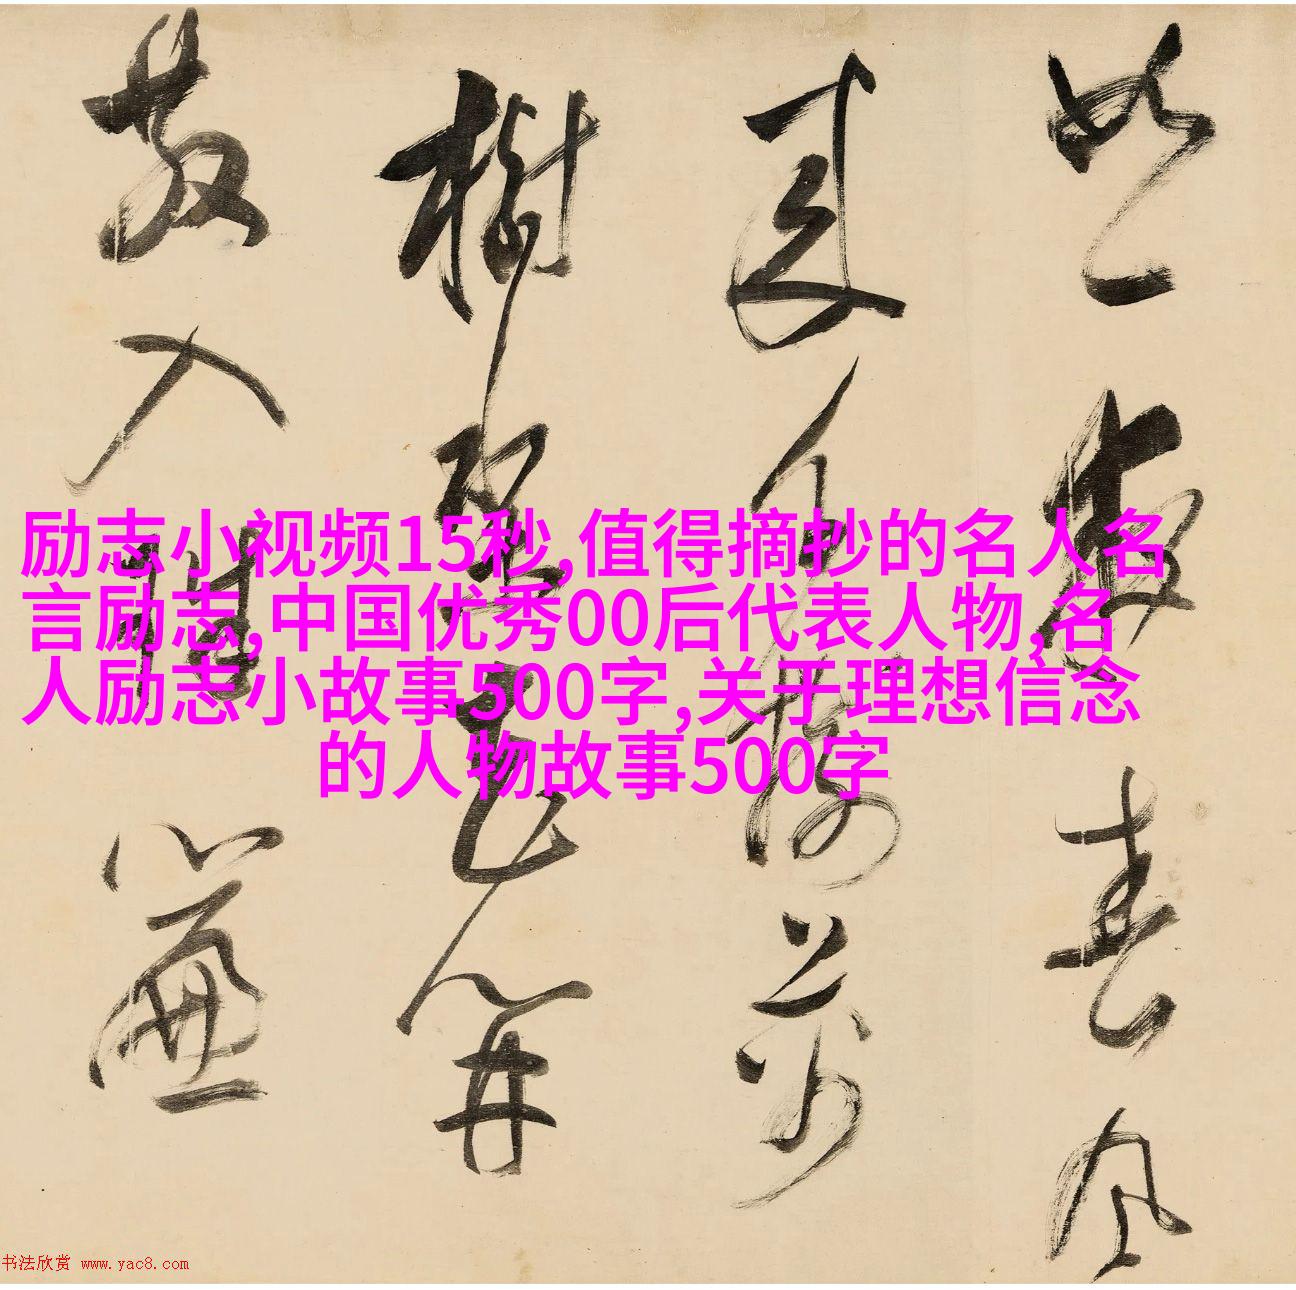 如一夜春風
来千樹萬
樹梨花開
散入珠簾
励志小视频15秒,值得摘抄的名人名
言励志,中国优秀00后代表人物,名
人励志小故事500字,关于理想信念
的人物故事500字
书法欣赏 www.yac8.com